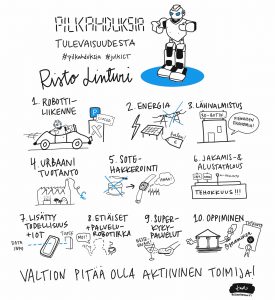 PILKAHDUKSIA
TULEVAISUUDESTA
#pilkahduksia #julkICT
Risto Linturi
1. ROBOTTI-
LIIKENNE
2. ENERGIA
3. LÄHIVALMISTUS
P
4. URBAANI
TUOTANTO
5. SOTE-
HAKKEROINTI
6. JAKAMIS- &
ALUSTATALOUS
TEHOKKUUS!!!
7. LISÄTTY
TODELLISUUS
+ IOT
8. ETIÄISET
+ PALVELU-
ROBOTIIKKA
9. SUPER-
KYKY-
PALVELUT
10. OPPIMINEN
DATA
INFO
MOI!
VALTION PITÄÄ OLLA AKTIIVINEN TOIMIJA!